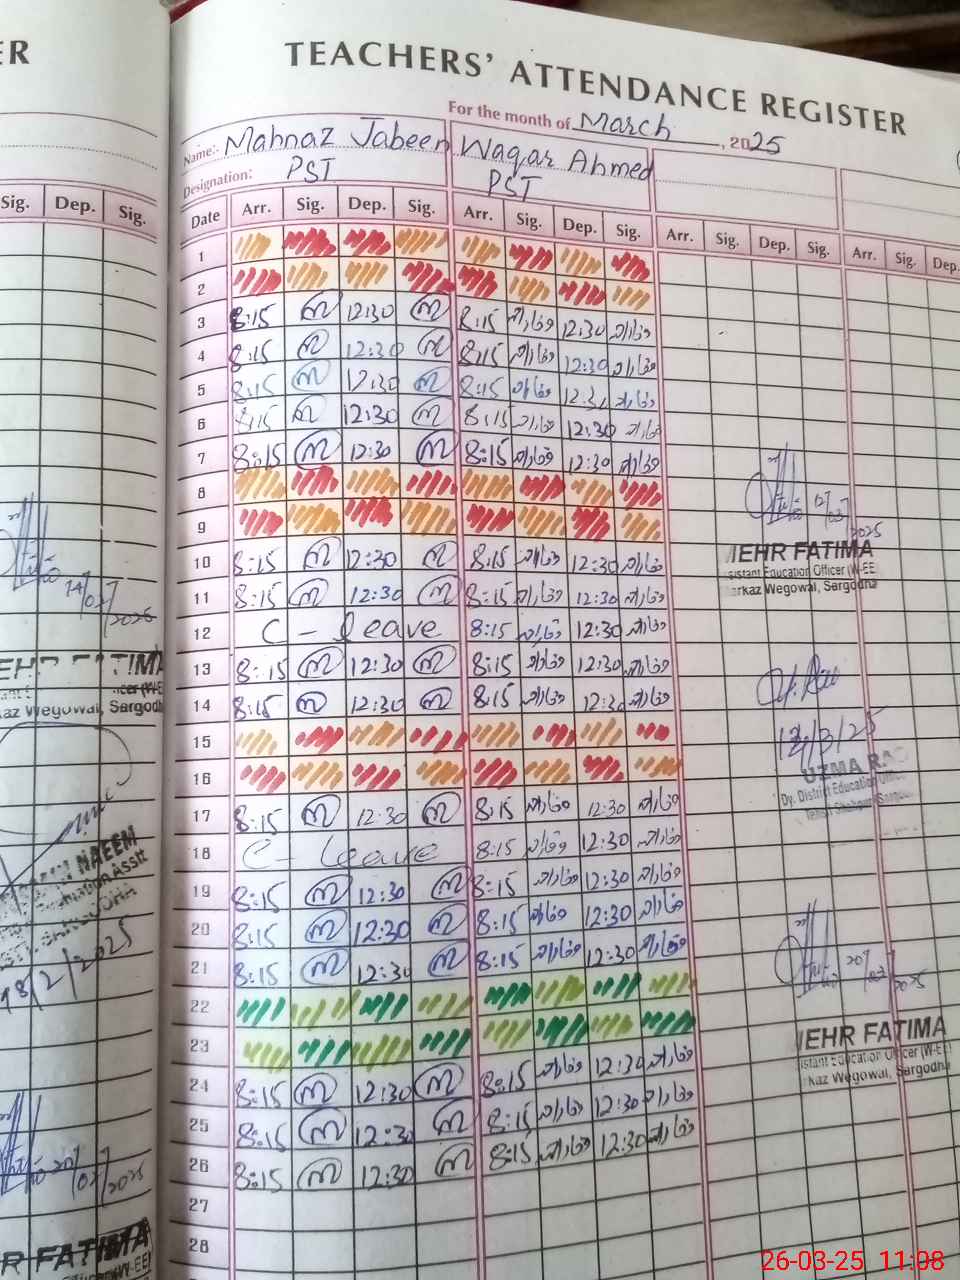 ER
TEACHERS' ATTENDANCE REGISTER
For the month of March, 2025
Name:- Mahnaz Jabeen Waqar Ahmed
Designation: PST PST
Sig. Dep. Sig.
Date Arr. Sig. Dep. Sig. Arr. Sig. Dep. Sig. Arr. Sig. Dep. Sig. Arr. Sig. Dep.
1
2
3 8:15 12:30 8:15 وقار 12:30 وقار
4 8:15 12:30 8:15 وقار 12:30 وقار
5 8:15 12:30 8:15 وقار 12:30 وقار
6 8:15 12:30 8:15 وقار 12:30 وقار
7 8:15 12:30 8:15 وقار 12:30 وقار
8
9
10 8:15 12:30 8:15 وقار 12:30 وقار
11 8:15 12:30 8:15 وقار 12:30 وقار
12 C - leave 8:15 وقار 12:30 وقار
13 8:15 12:30 8:15 وقار 12:30 وقار
14 8:15 12:30 8:15 وقار 12:30 وقار
15
16
17 8:15 12:30 8:15 وقار 12:30 وقار
18 C - Leave 8:15 وقار 12:30 وقار
19 8:15 12:30 8:15 وقار 12:30 وقار
20 8:15 12:30 8:15 وقار 12:30 وقار
21 8:15 12:30 8:15 وقار 12:30 وقار
22
23
24 8:15 12:30 8:15 وقار 12:30 وقار
25 8:15 12:30 8:15 وقار 12:30 وقار
26 8:15 12:30 8:15 وقار 12:30 وقار
27
28
2025
MEHR FATIMA
sistant Education Officer (W-EE
arkaz Wegowal, Sargodha
UZMA RAO
Dy. District Education
20/03/2025
MEHR FATIMA
istant Education Officer (W-E
kaz Wegowal, Sargodha
14/02/2025
EHR FATIMA
kaz Wegowal, Sargodha
NAEEM
18/2/2025
20/02/2025
R FATIMA
26-03-25 11:08